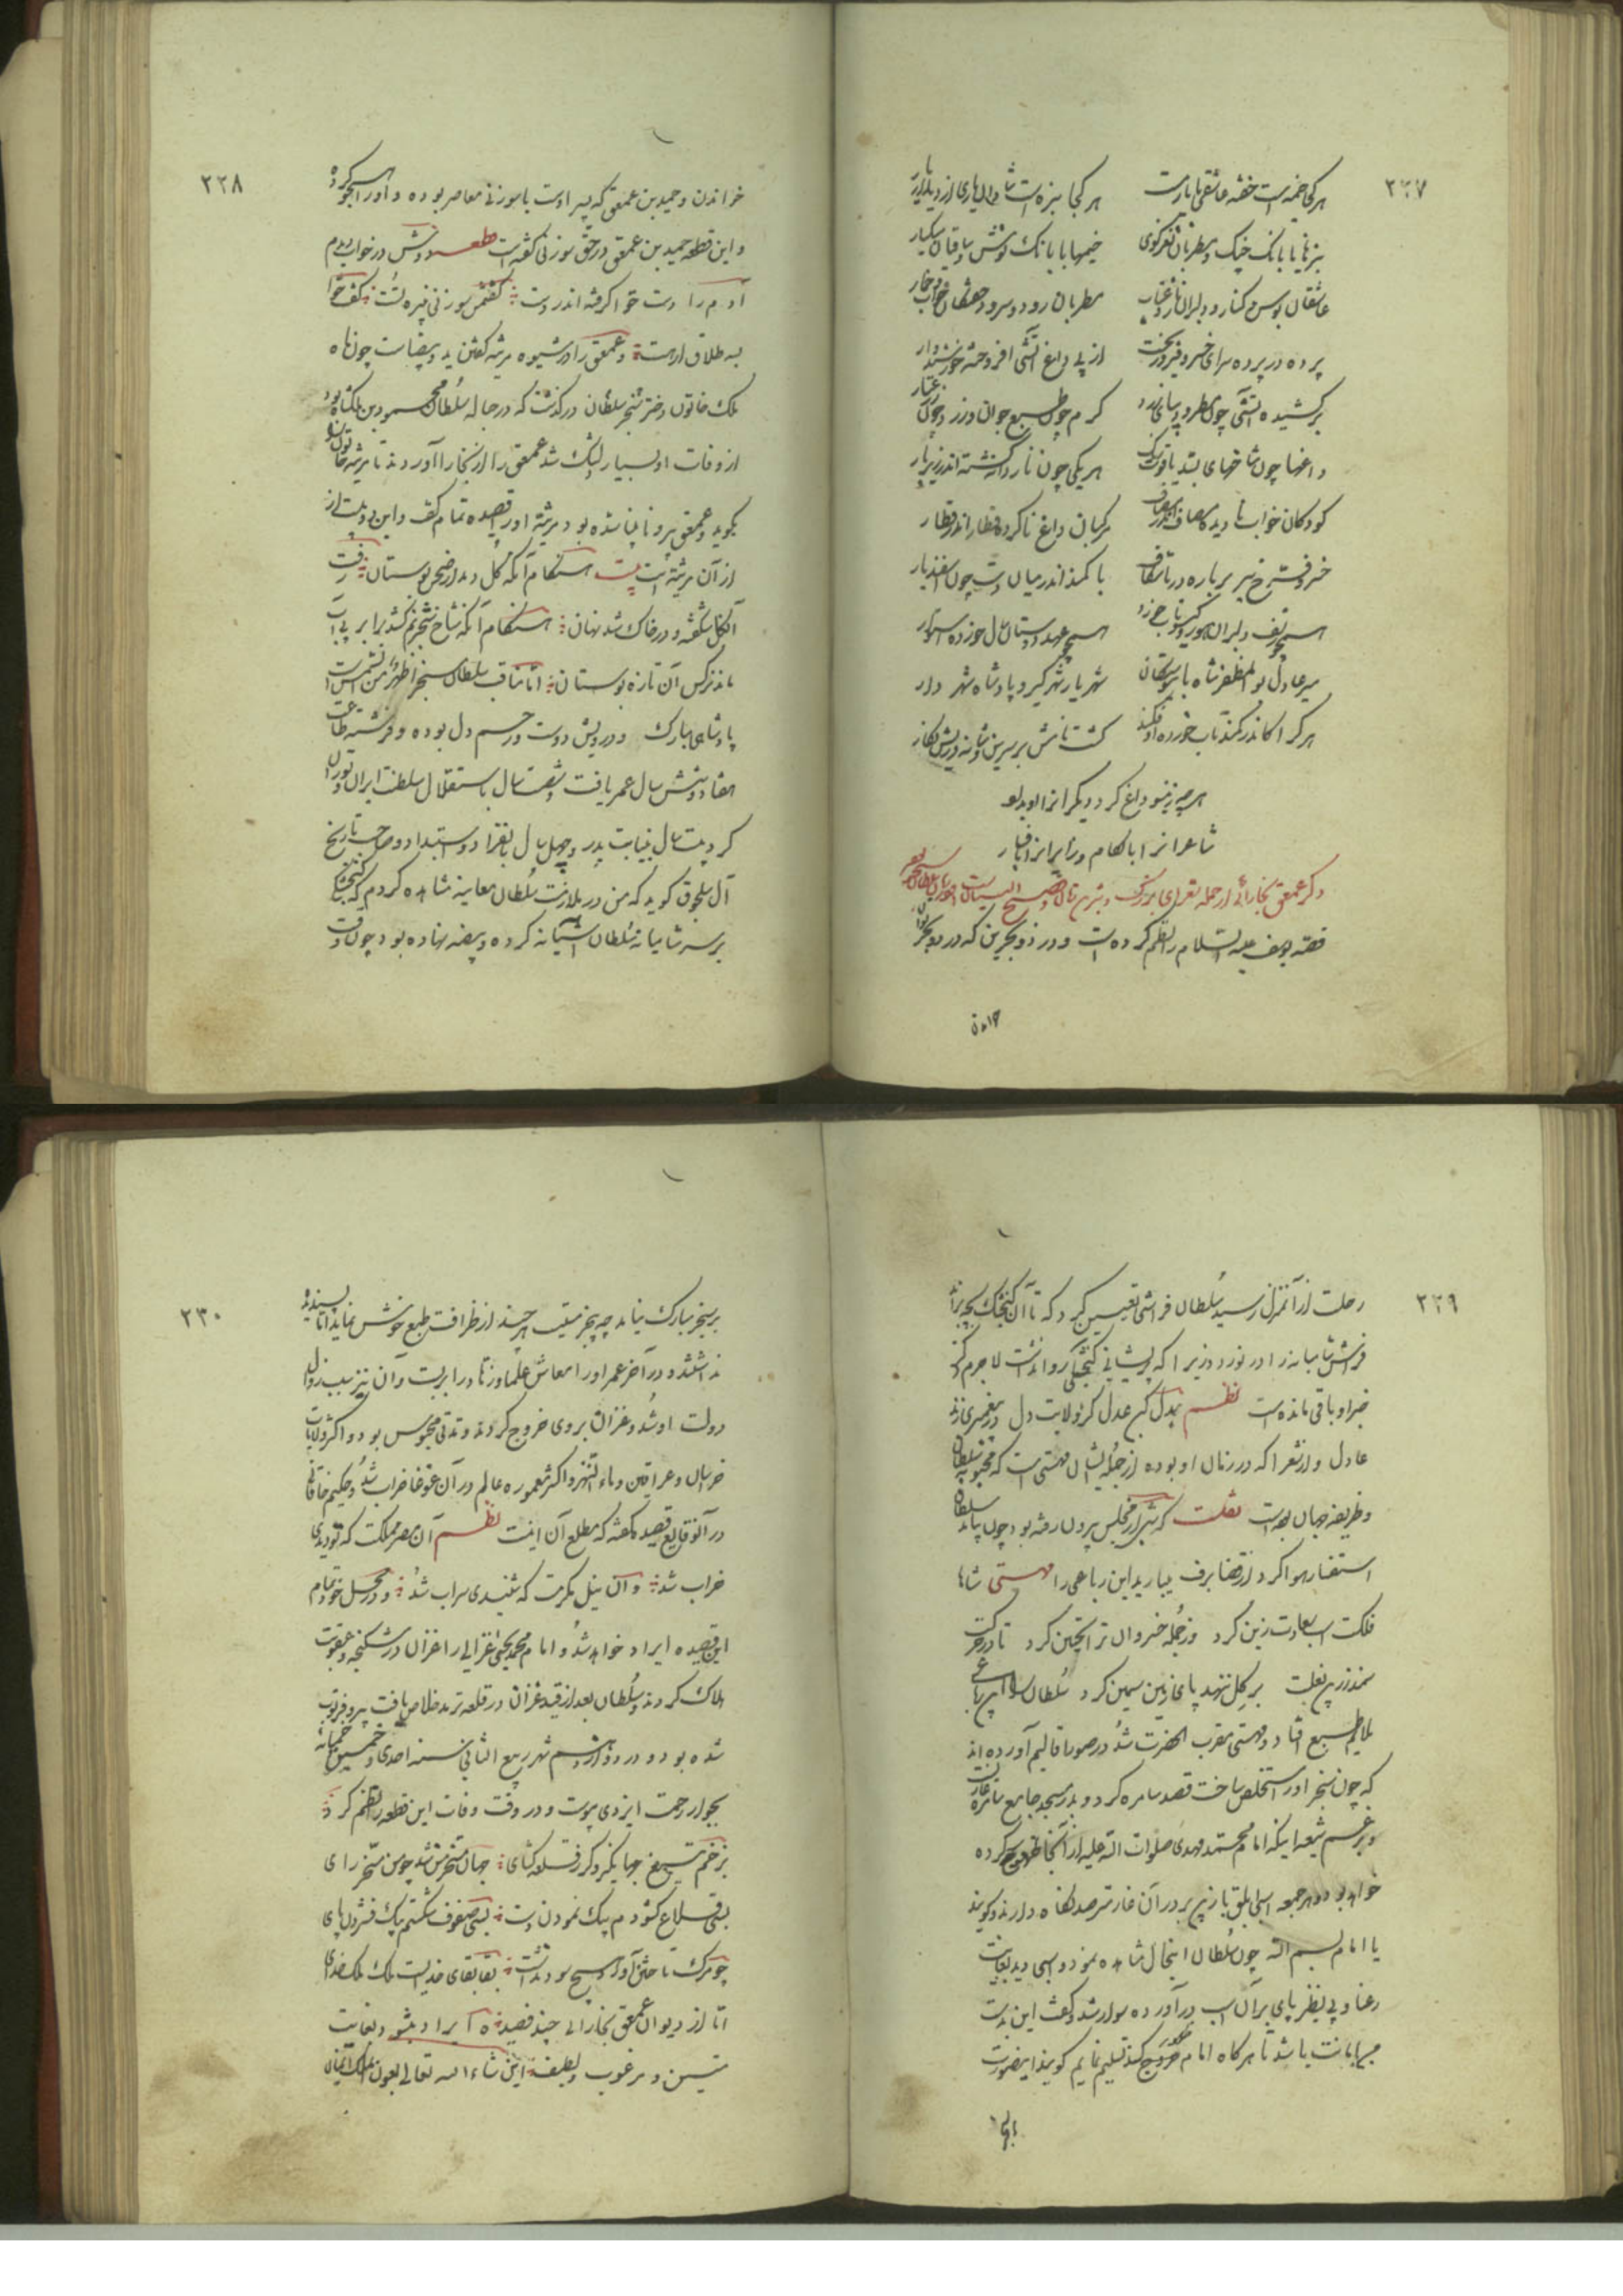 ٢٢٧
هر کجا خیمه است خفته عاشقی با یار مست
هر کجا سبزه است شادان یاری از دیدار یار
سبزها با بانک چنک و مطربان نغز کوی
خیمها با بانک نوش و ساقیان میکسار
عاشقان بوس و کنار و دلبران ناز و عتاب
مطربان رود و سرود و خفتکان خواب و خمار
پرده در پرده سرای خسرو فیروز بخت
از پی داغ آتشی افروخته خورشیدوار
برکشیده آتشی چون مطرد دیبای زرد
کرم چون طبع جوان و زرد چون زر عیار
داغها چون شاخهای بسد یاقوت رنک
هر یکی چون نار دانه کشته اندر زیر نار
کودکان خواب نادیده مصاف اندر مصاف
مرکبان داغ ناکرده قطار اندر قطار
خسرو فرخ سیر بر باره دریا شکاف
با کمند اندر میان دشت چون اسفندیار
همچو زلف دلبران مور کیسو تاب زد
همچو عهد دوستان سال خورده استوار
میر عادل بو المظفر شاه با پیوستکان
شهریار شهر کیر و پادشاه شهر دار
هر کرا اندر کمند تاب خورده افکند
کشت نامش بر سرین و شانه و رویش نکار
هر چه زینسو داغ کرد از دیکر سو
شاعرانرا با لکام و زایرانرا با فسار
ذکر عمعق بخارائی از جمله شعرای بزرکست و بزمان سلطان سنجر بوده
قصه یوسف علیه السلام را نظم کرده است و در ذو بحرین که در دو بحر توان
خواندن
٢٢٨
خواندن و حمید بن عمعق که پسر اوست با سوزنی معاصر بوده و او را هجو کرده
و این قطعه حمید بن عمعق در حق سوزنی کفته است قطعه دوش در خواب دیدم
آدم را دست حوا کرفته اندر دست کفتمش سوزنی نبیره تست کفت حوا
بسه طلاق ار هست و عمعق را در شیوه مرثیه کفتن ید بیضاست چون ماه
ملک خاتون دختر سنجر سلطان درکذشت که در حباله سلطان محمود بن ملکشاه بود
از وفات او بسیار دلتنک شد عمعق را از بخارا آوردند تا مرثیه خاتون
بکوید و عمعق پیر و نابینا شده بود مرثیه او را قصیده تمام کفت و این دو بیت از
از آن مرثیه است بیت هنکام آنکه کل دمد از صحن بوستان رفت
آن کل شکفته و در خاک شد نهان هنکام آنکه شاخ شجر نم کشد ز ابر بی آب
ماند نرکس آن تازه بوستان اما مناقب سلطان سنجر اظهر من الشمس است
پادشاهی مبارک و درویش دوست و رحیم دل بوده و فرشته طاعت
هفتاد و شش سال عمر یافت و شصت سال باستقلال سلطنت ایران و توران
کرد بیست سال بنیابت پدر و چهل سال بانفراد و استبداد و صاحب تاریخ
آل سلجوق کوید که من در ملازمت سلطان معاینه مشاهده کردم که کنجشکی
بر سر شامیانه سلطان آشیانه کرده و بیضه نهاده بود چون وقت
٢٢٩
رحلت از آن منزل رسید سلطان فراشی تعیین کرد که تا آن کنجشک بچه برآرد
فراش شامیانه را در نوردد زیرا که پریشانی کنجشکی روا نداشت لاجرم ذکر
خیر او باقی مانده است نظم عدل کن عدل کز ولایت دل در پیغمبری زند
عادل و از شعرا که در زمان او بوده از جمله ایشان مهستی است که محبوبه سلطان
و ظریفه جهان بوده است نقلست که شبی از مجلس بیرون رفته بود چون پیاید سلطان
استفسار هوا کرد از قضا برف میبارید این رباعی را مهستی شاها
فلکت اسب سعادت زین کرد وز جمله خسروان ترا تحسین کرد تا در حرکت
سمند زرین نعلت بر کل ننهد پای زمین سیمین کرد سلطان را این رباعی
ملایم طبع افتاد و مهستی مقرب الحضرت شد در صور اقالیم آورده اند
که چون سنجر او را مستخلص ساخت قصد سامره کرد و بدر مسجد جامع سامره
و بزعم شیعه اینکه امام محمد مهدی صلوات الله علیه از آنجا خروج کرده
خواهد بود و هر جمعه اسبی ابلق با زین بر در آن غار مترصد نکاه دارند و کویند
یا امام بسم الله چون سلطان این حال مشاهده نمود و اسبی دید بغایت
رعنا و بی نظیر پای بر آن اسب درآورده سوار شد و کفت این بدست
من امانت باشد تا هر کاه امام خروج کند تسلیم نمایم کویند اینصورت
٢٣٠
بر سنجر مبارک نیامد چه هر چند از ظرافت طبع خوش نماید اما پسندیده
نداشتند و در آخر عمر او را معاش علما و زهاد را بریست و آن نیز سبب زوال
دولت او شد و غزان بر وی خروج کردند و مدتی محبوس بود و اکثر ولایات
خراسان و عراقین و ماوراء النهر و اکثر معموره عالم در آن غوغا خراب شد و حکیم خاقانی
در آن وقایع قصیده کفته که مطلع آن اینست نظم آن مصر مملکت که تو دیدی
خراب شد و آن نیل مکرمت که شنیدی سراب شد و در محل خود تمام
این قصیده ایراد خواهد شد و امام محمد یحیی غزالی را غزان در شکنجه و عقوبت
هلاک کردند و سلطان بعد از قید غزان در قلعه ترمد خلاص یافت پیر و فرتوت
شده بود و در دوازدهم شهر ربیع الثانی سنه احدی و خمسین خمسمائه
بجوار رحمت ایزدی پیوست و در وقت وفات این قطعه را نظم کرد
بزخم تیغ جهانکیر و کرز قلعه کشای جهان مسخر من شد چو من مسخر رای
بسی قلاع کشودم بیک نمودن دست بسی صفوف شکستم بیک فشردن پای
چو مرک تاختن آورد هیچ سود نداشت بقا بقای خدایست ملک ملک خدای
اما از دیوان عمعق بخارائی چند قصیده ایراد بشود بغایت
متین و مرغوب و لطیف انشاء الله تعالی بعون الملک المنان